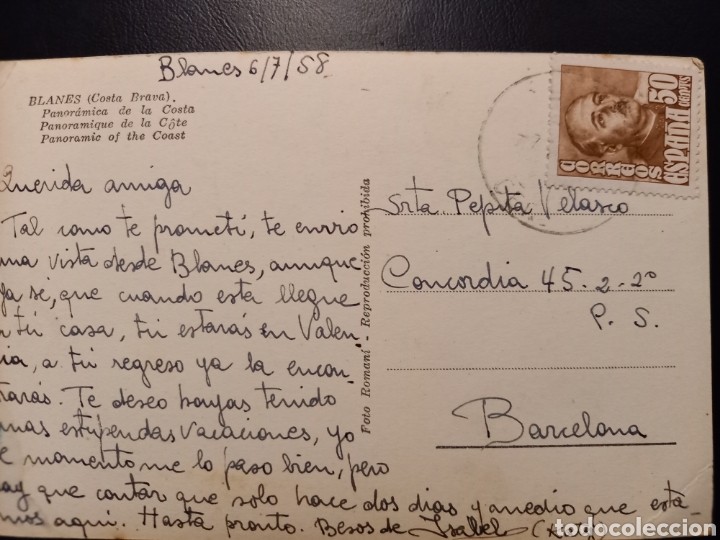 Blanes 6/7/58.
BLANES (Costa Brava).
Panorámica de la Costa
Panoramique de la Côte
Panoramic of the Coast
Querida amiga
Tal como te prometí, te envio
una vista desde Blanes, aunque
ya se, que cuando esta llegue
en tú casa, tú estarás en Valen
cia, a tú regreso ya la encon-
trarás. Te deseo hayas tenido
unas estupendas vacaciones, yo
de momento me lo paso bien, pero
hay que contar que solo hace dos dias y medio que esta-
mos aquí. Hasta pronto. Besos de Isabel
Foto Romaní - Reproducción prohibida
50 CENTMS
CORREOS
ESPAÑA
Srta. Pepita Velasco
Concordia 45. 2-2º
P. S.
Barcelona
todocoleccion